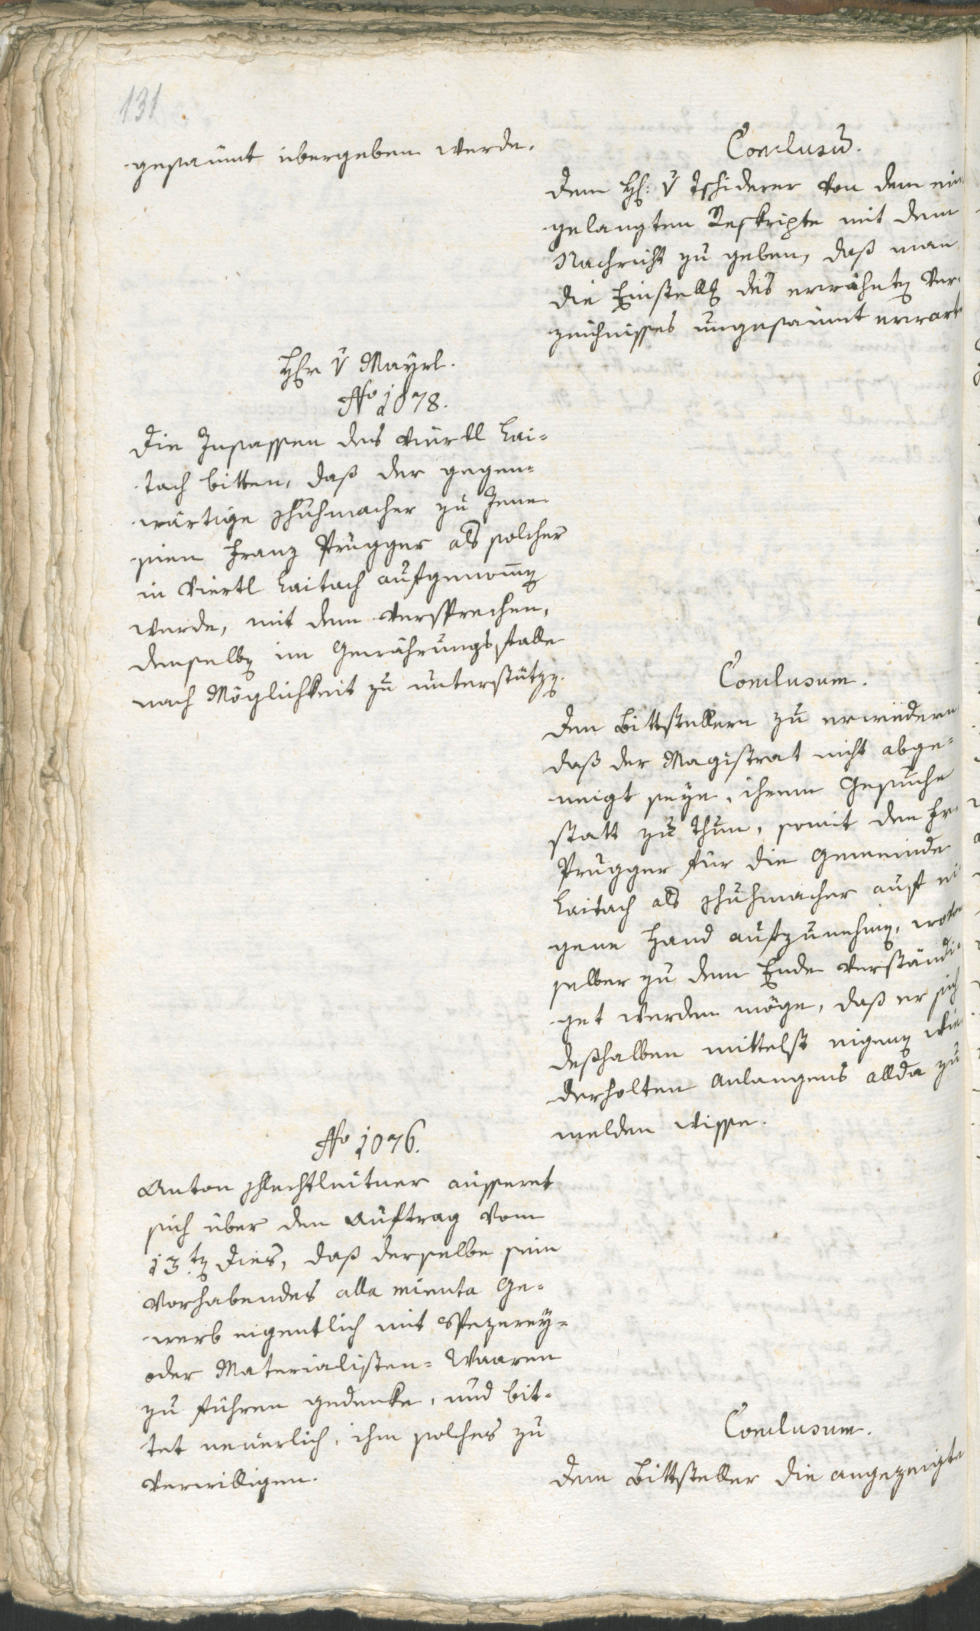 131
gesaumt übergeben werde.
Conclusum̅.
Dem H: v Tschiderer von dem ein
gelangten Reskripte mit dem
Nachricht zu geben, daß man
die Einstellg des erwähntn Ver¬
zeichnisses ungesaumt erwart
H̅r v Mayrl.
No 1078.
Die Insassen des Viertl Lai¬
tach bitten, daß der gegen¬
wärtige Schuhmacher zu Jene
sien Franz Prugger als solcher
in Viertl Laitach aufgenom̅n
werde, mit dem Versprechen,
denselbn im Gewährungsfalle
nach Möglichkeit zu unterstützn.
Conclusum.
Den Bittstellern zu erwiedern
daß der Magistrat nicht abge¬
neigt seye, ihrem Gesuche
statt zu thun, somit den Fr.
Prugger für die Gemeinde
Laitach als Schuhmacher auf ei
gene Hand aufzunehmn,
selber zu dem Ende verständi¬
get werden möge, daß er sich
deßhalben mittelst eignen wie
derholten Anlangens allda zu
melden wisse.
No 1076.
Anton Schlechtleitner äusseret
sich über den Auftrag vom
13.tn dies, daß derselbe sein
vorhabendes alla minuta Ge¬
werb eigentlich mit Spezerey¬
oder Materialisten= Waaren
zu führen gedenke, und bit¬
tet neuerlich, ihm solches zu
verwilligen.
Conclusum.
Dem Bittsteller die angezeigte